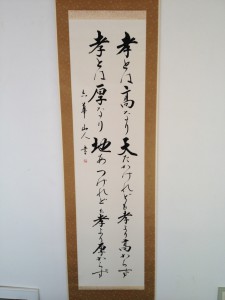 孝とは高なり天たかけれども孝より高からず
孝とは厚なり地あつけれども孝より厚からず
六華山人書